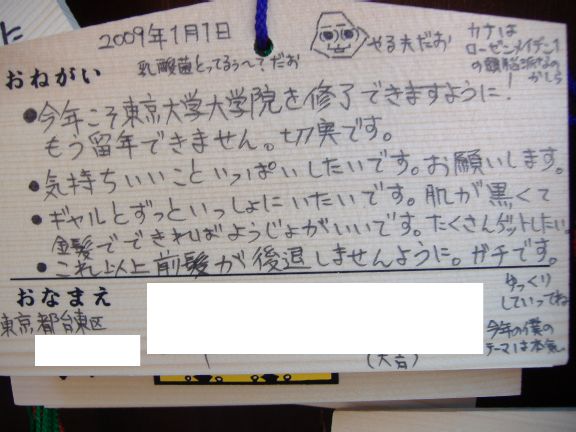 2009年1月1日
乳酸菌とってるぅ～?だお
やる夫だお
カナは
ローゼンメイデン1
の頭脳派なの
かしら!
おねがい
●今年こそ東京大学大学院を修了できますように!
もう留年できません。切実です。
●気持ちいいこといっぱいしたいです。お願いします。
●ギャルとずっといっしょにいたいです。肌が黒くて
金髪でできればようじょがいいです。たくさんゲットしたい。
●これ以上前髪が後退しませんように。ガチです。
おなまえ
東京都台東区
ゆっくり
していってね
今年の僕の
テーマは本気